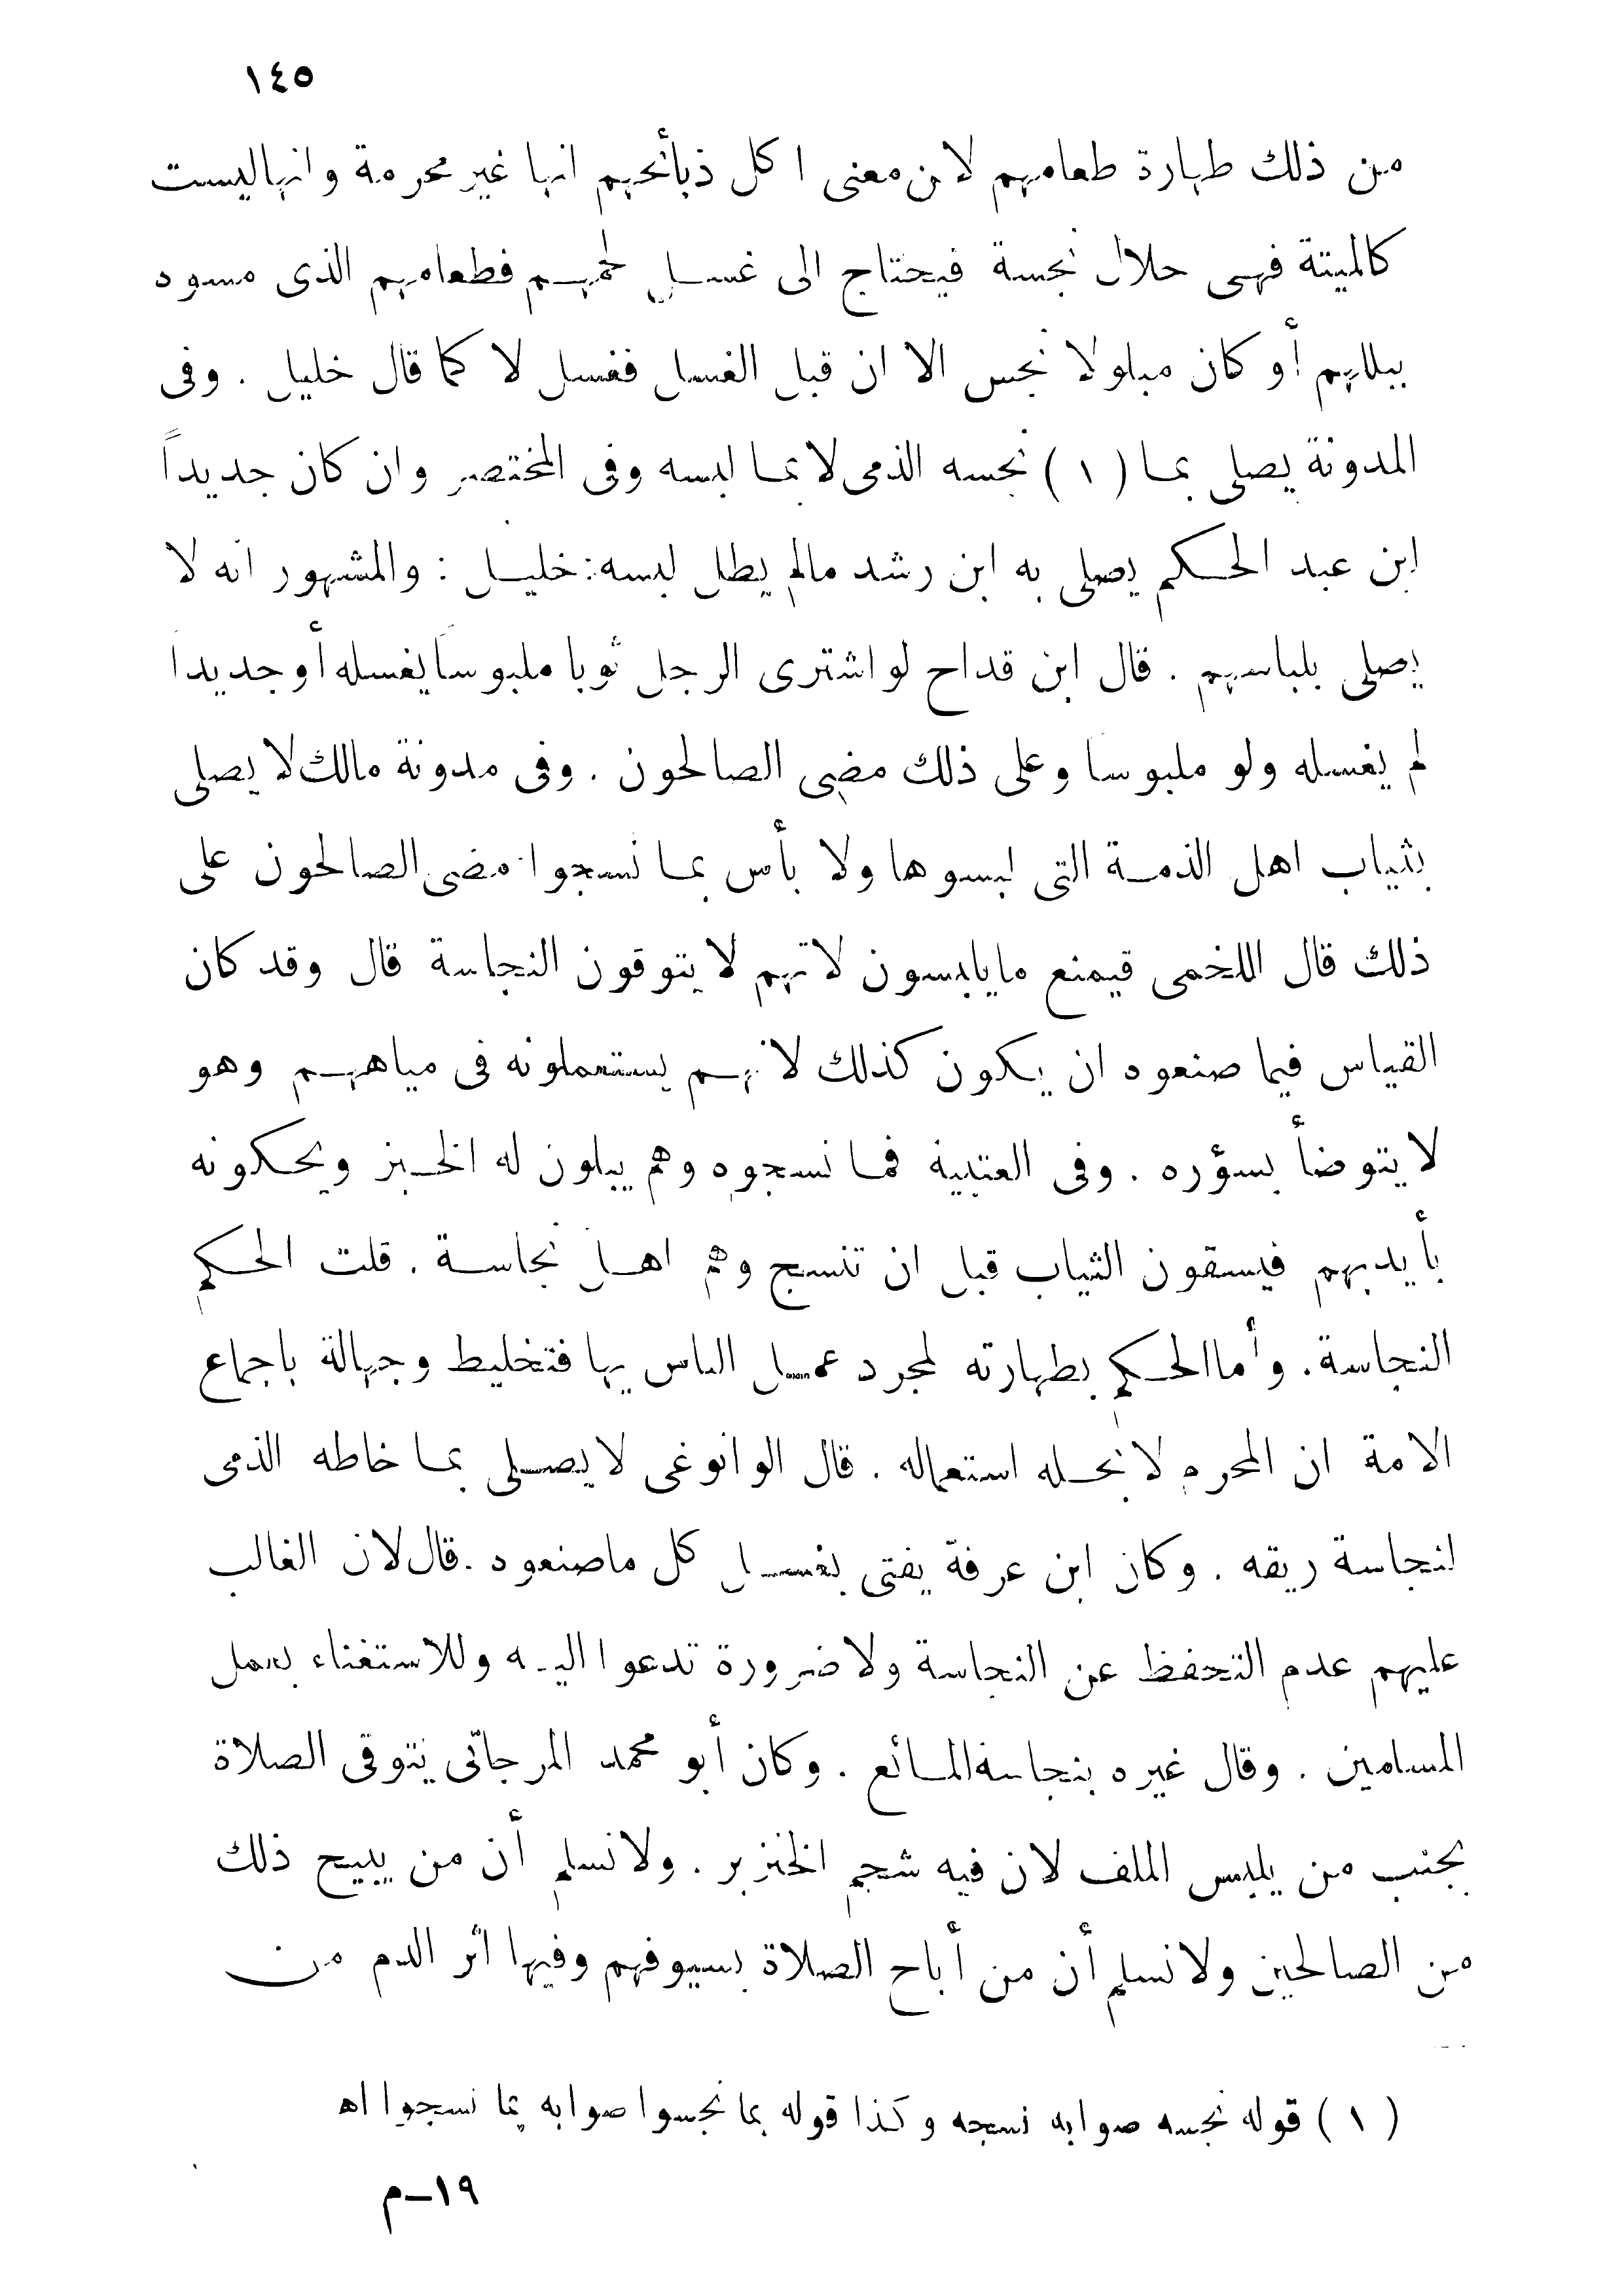 ١٤٥
من ذلك طهارة طعامهم لان معنى اكل ذبأئحهم انها غير محرمة وانها ليست
كالميتة فهى حلال نجسة فيحتاج الى غسل لحمهم فطعامهم الذى مسوه
ببللهم أو كان مبلولا نجس الا ان قبل الغسل فغسل لا كما قال خليل . وفى
المدونة يصلى بما (١) نجسه الذمى لا بما لبسه وفى المختصر وان كان جديداً
ابن عبد الحكم يصلى به ابن رشد مالم يطل لبسه: خليل : والمشهور انه لا
يصلى بلباسهم . قال ابن قداح لو اشترى الرجل ثوبا ملبوسا يغسله أو جديدا
لم يغسله ولو ملبوسا وعلى ذلك مضى الصالحون . وفى مدونة مالك لا يصلى
بثياب اهل الذمة التى لبسوها ولا بأس بما نسجوا مضى الصالحون على
ذلك قال اللخمى قيمنع ما يلبسون لانهم لا يتوقون النجاسة قال وقد كان
القياس فيما صنعوه ان يكون كذلك لانهم يستعملونه فى مياههم وهو
لا يتوضأ بسؤره . وفى العتبية فما نسجوه وهم يبلون له الخبز ويحكونه
بأيديهم فيسقون الثياب قبل ان تنسج وهم اهل نجاسة . قلت الحكم
النجاسة . وأما الحكم بطهارته لمجرد عمل الناس بها فتخليط وجهالة باجماع
الامة ان المحرم لا يحله استعماله . قال الوانوغى لا يصلى بما خاطه الذمى
لنجاسة ريقه . وكان ابن عرفة يفتى بغسل كل ما صنعوه . قال لان الغالب
عليهم عدم التحفظ عن النجاسة ولا ضرورة تدعوا اليه وللاستغناء بعمل
المسلمين . وقال غيره بنجاسة المائع . وكان أبو محمد المرجانى يتوقى الصلاة
بجنب من يلبس الملف لان فيه شحم الخنزير . ولا نسلم أن من يبيح ذلك
من الصالحين ولا نسلم أن من أباح الصلاة بسيوفهم وفيها اثر الدم من
(١) قوله نجسه صوابه نسجه وكذا قوله بما نجسوا صوابه بما نسجوا اه
١٩-م